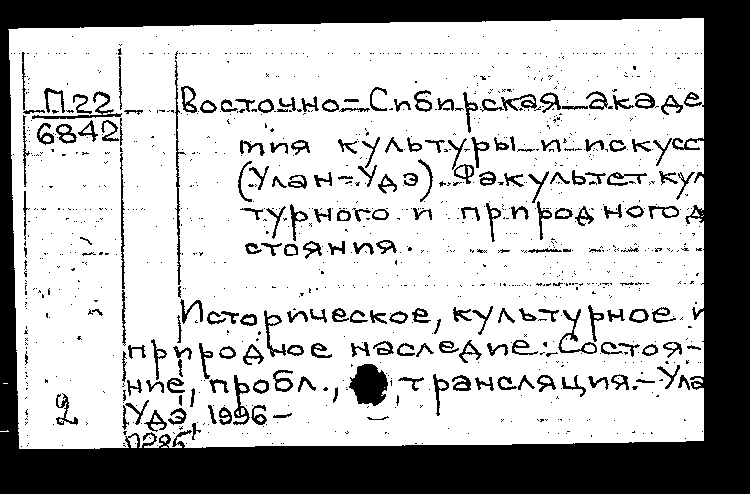 П22
6842
Восточно-Сибирская акаде
мия культуры и искусс
(Улан-Удэ). Факультет кул
турного и природного д
стояния.
Историческое, культурное и
природное наследие: Состоя-
ние, пробл., , трансляция. - Ула
Удэ, 1996 -
2